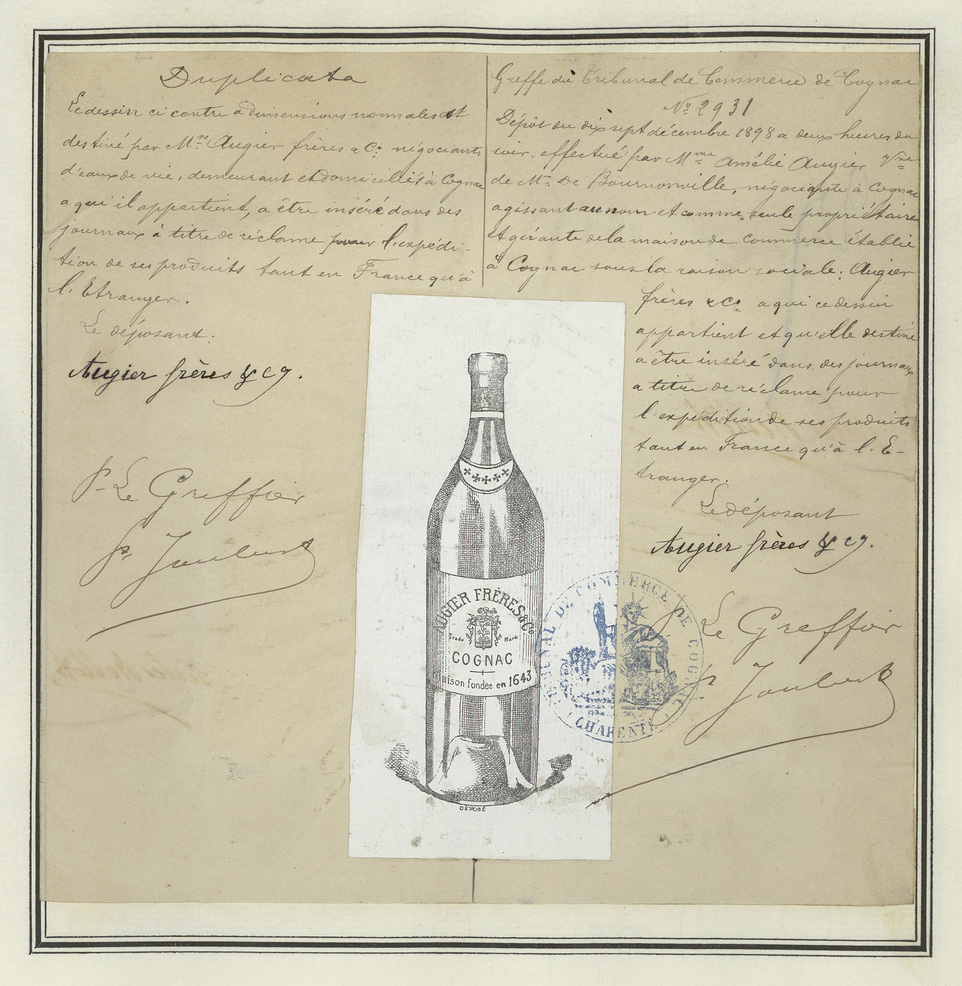 Duplicata
Le dessin ci contre à dimensions normales est
destiné par M.rs Augier frères & Co négociants
d'eaux de vie, demeurant et domiciliés à Cognac
a qui il appartient, a être inséré dans des
journaux à titre de réclame pour l'expédi-
tion de ses produits tant en France qu'à
l'Etranger.
Le déposant.
Augier frères & Cy.
P. Le Greffier
P. Joubert
Greffe du Tribunal de Commerce de Cognac
No 2931
Dépôt du dix sept décembre 1898 a deux heures du
soir, effectué par Mme Amélie Augier Vve
de Mr. De Bournonville, négociante à Cognac
agissant au nom et comme seule propriétaire
et gérante de la maison de commerce établie
à Cognac sous la raison sociale: Augier
frères & Co. a qui ce dessin
appartient et qu'elle destine
a être inséré dans des journaux
a titre de réclame pour
l'expédition de ses produits
tant en France qu'à l'E-
tranger.
Le déposant
Augier frères & Cy.
Le Greffier
P. Joubert
AUGIER FRÈRES & Co
Trade Mark
COGNAC
Maison fondée en 1643
TRIBUNAL DE COMMERCE DE COGNAC
CHARENTE